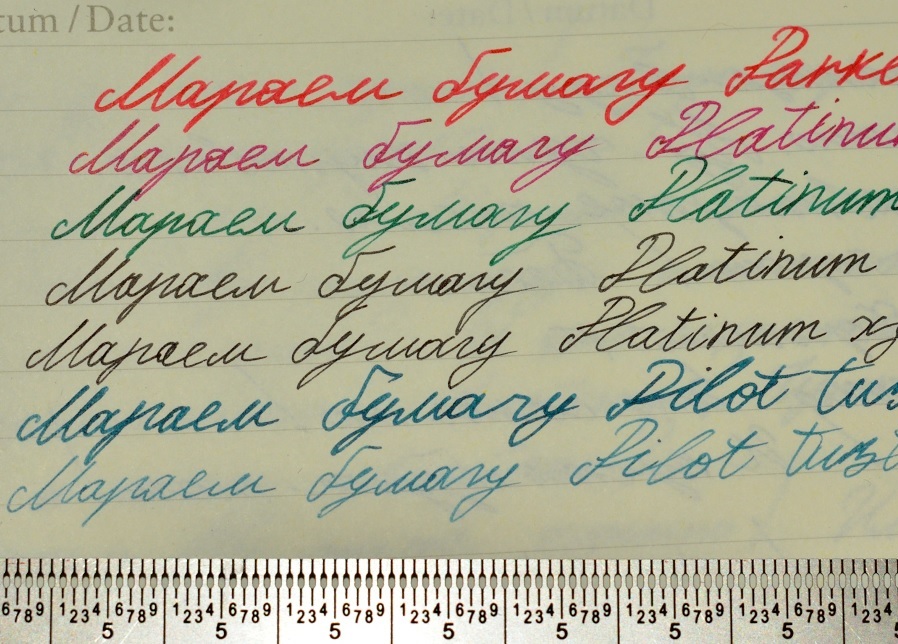 tum / Date:
Мараем бумагу Parke
Мараем бумагу Platinu
Мараем бумагу Platinum
Мараем бумагу Platinum
Мараем бумагу Platinum
Мараем бумагу Pilot
Мараем бумагу Pilot
6789 1234 6789 1234 6789 1234 6789 1234 6789 1234 6789 1234 6789 1234 6789 123
5 5 5 5 5 5 5 5